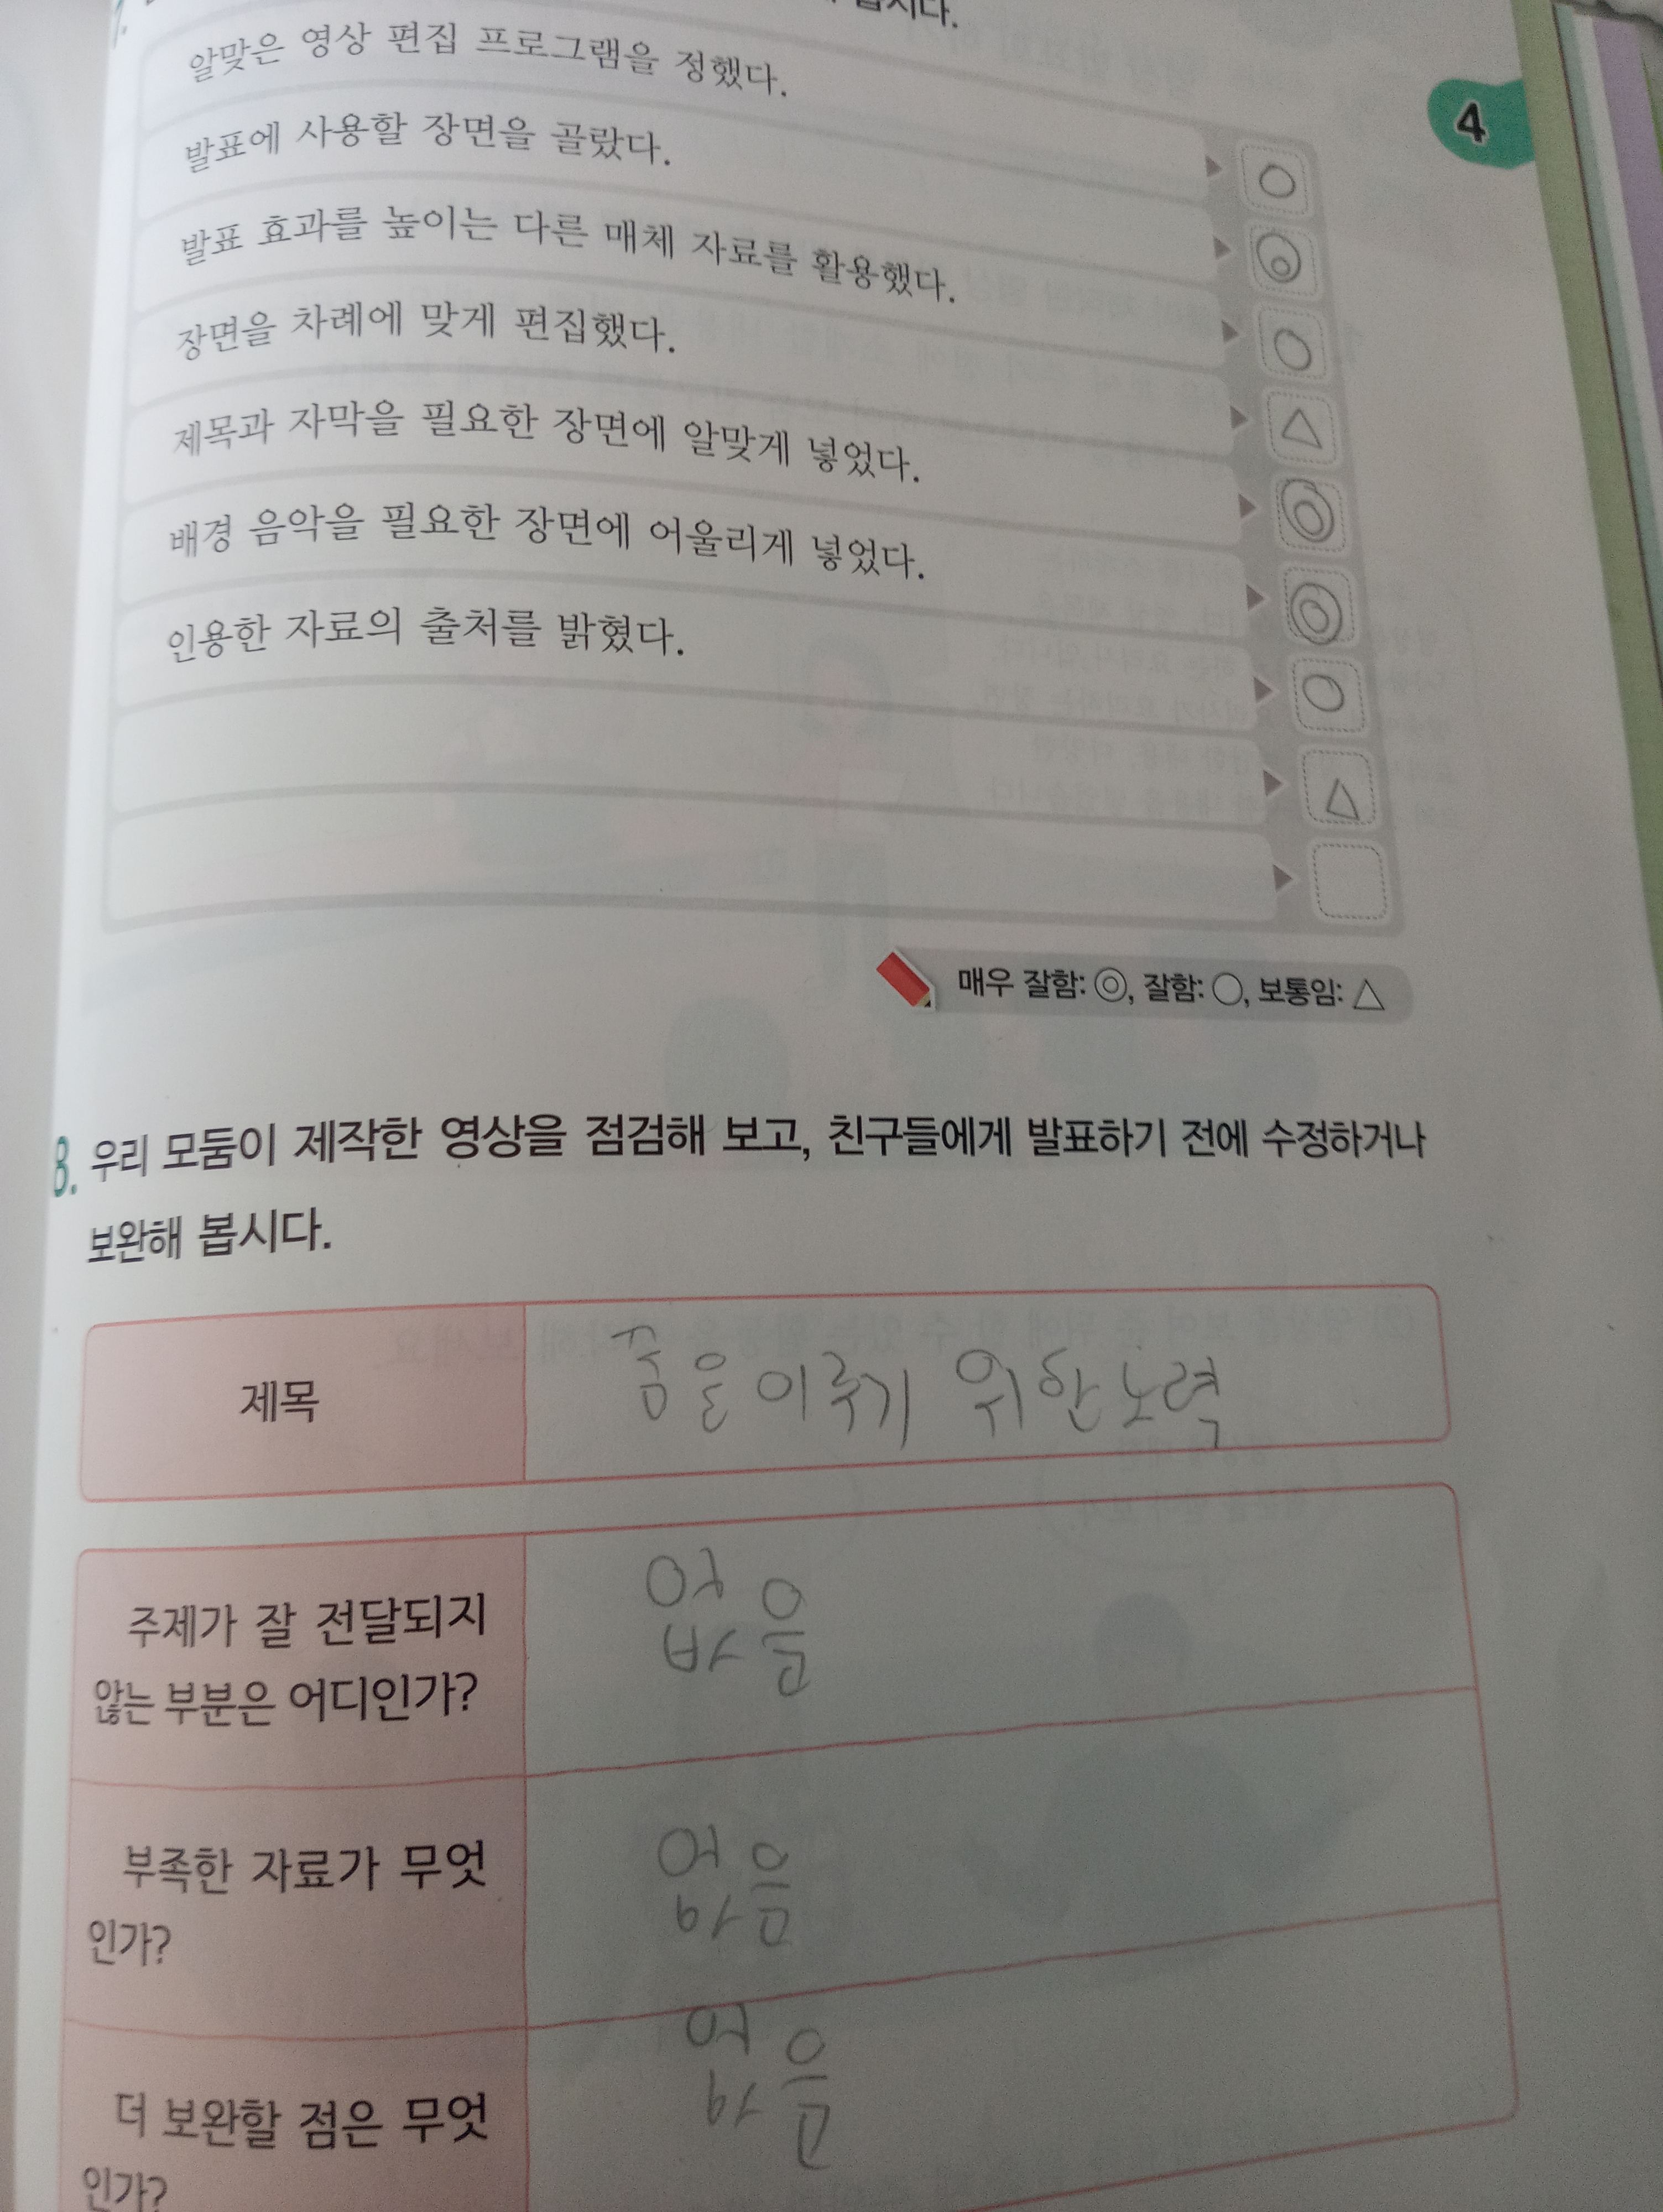 알맞은 영상 편집 프로그램을 정했다.
4
발표에 사용할 장면을 골랐다.
발표 효과를 높이는 다른 매체 자료를 활용했다.
장면을 차례에 맞게 편집했다.
제목과 자막을 필요한 장면에 알맞게 넣었다.
배경 음악을 필요한 장면에 어울리게 넣었다.
인용한 자료의 출처를 밝혔다.
매우 잘함: ◎, 잘함: ○, 보통임: △
8. 우리 모둠이 제작한 영상을 점검해 보고, 친구들에게 발표하기 전에 수정하거나
보완해 봅시다.
제목
꿈을 이루기 위한 노력
주제가 잘 전달되지
않는 부분은 어디인가?
없음
부족한 자료가 무엇
인가?
없음
더 보완할 점은 무엇
인가?
없음